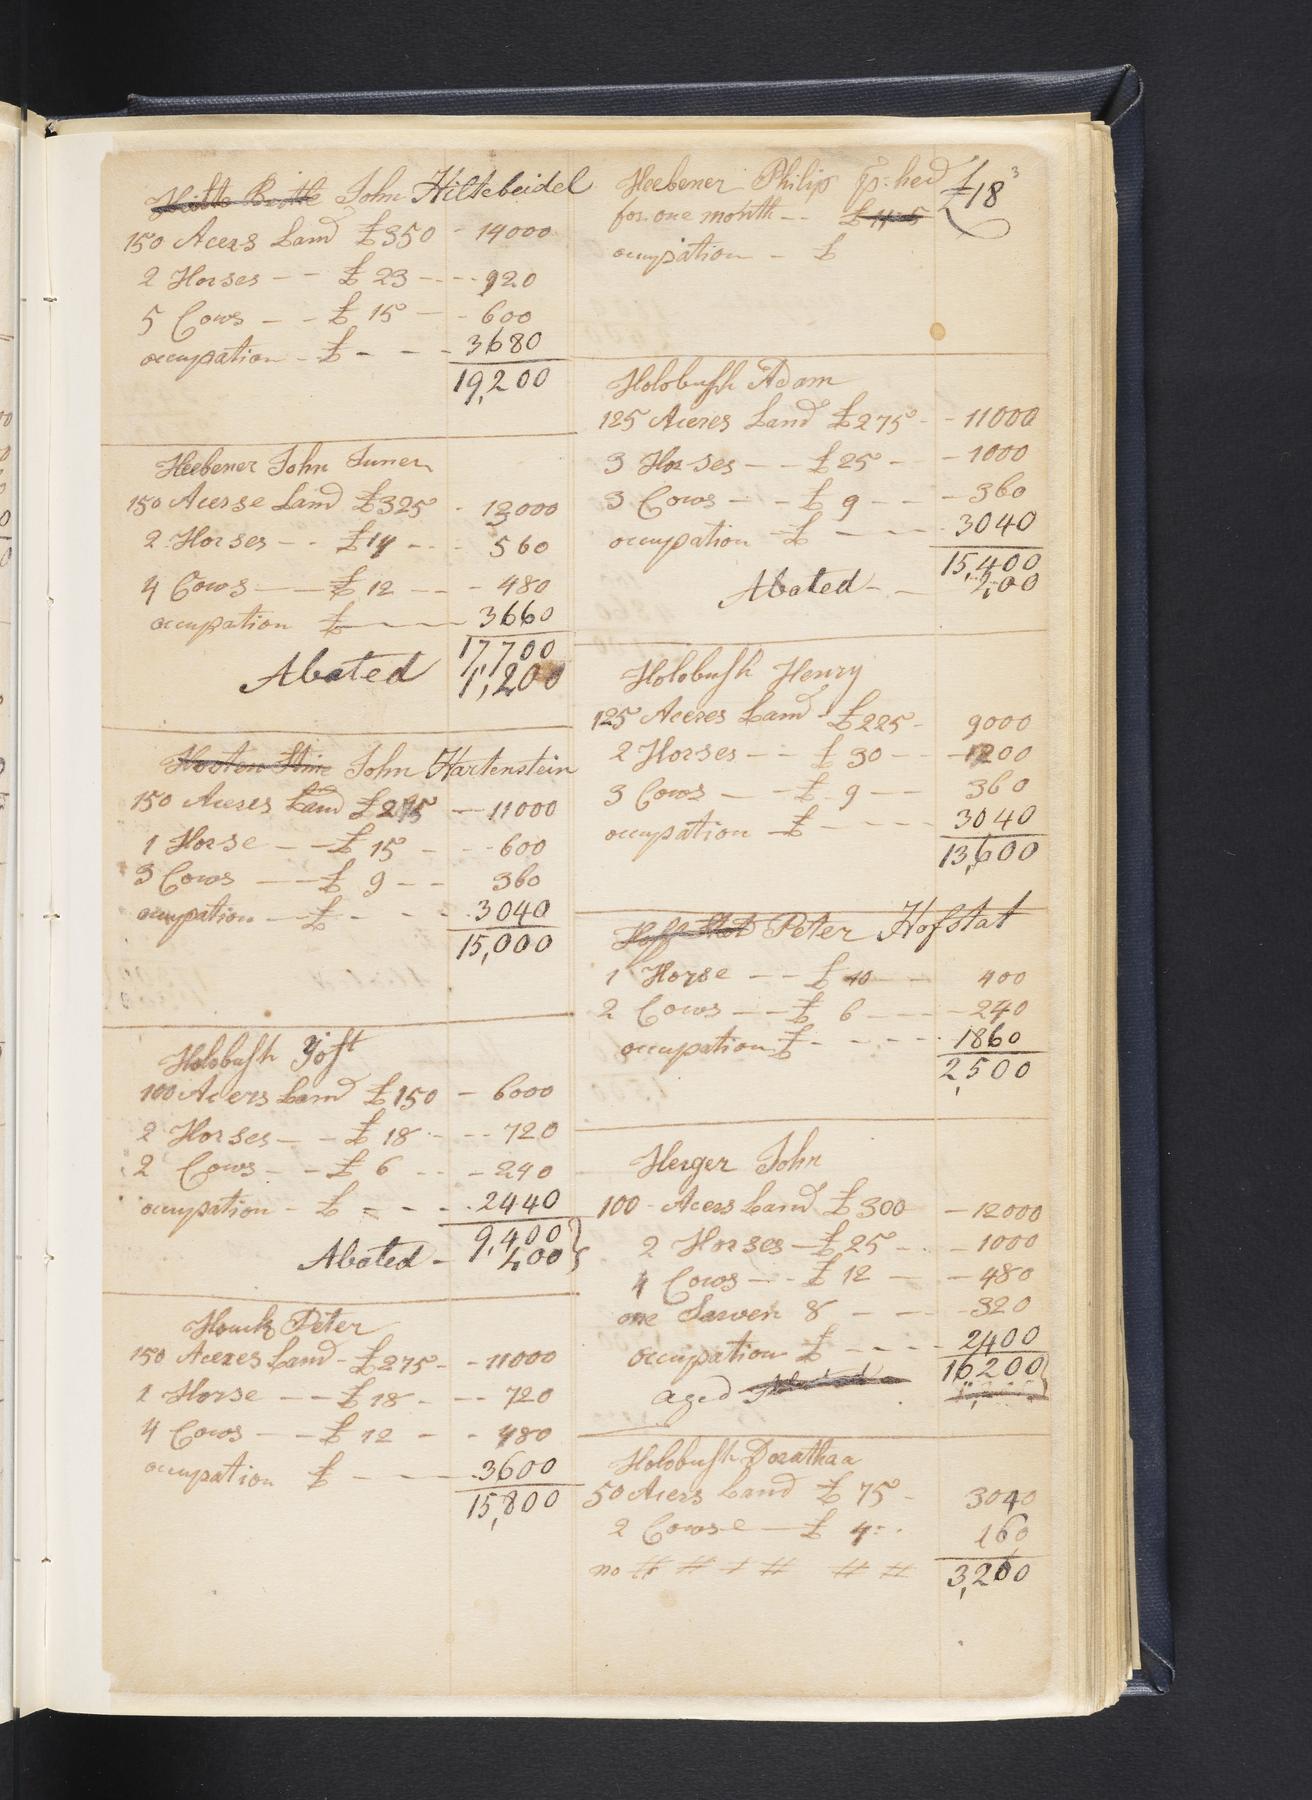 John Hiltebeidel
150 Acers Land £350 - 14000
2 Horses - - £ 23 - - - 920
5 Cows - - £ 15 - - 600
occupation - £ - - - 3680
19,200
Heebener John Juner
150 Acerse Land £325 - 13000
2 Horses - - £14 - - - 560
4 Cows - - £ 12 - - - 480
occupation £ - - - 3660
17,700
Abated 1,200
John Hartenstein
150 Aceres Land £275 - 11000
1 Horse - - £ 15 - - - 600
3 Cows - - £ 9 - - 360
occupation - £ - - - 3040
15,000
Holobush Yost
100 Acers Land £150 - 6000
2 Horses - - £ 18 - - - 720
2 Cows - - £ 6 - - - 240
occupation - £ - - - 2440
9,400
Abated - 400
Houck Peter
150 Aceres Land - £275 - - 11000
1 Horse - - £ 18 - - - 720
4 Cows - - £ 12 - - 480
occupation £ - - - 3600
15,800
Heebener Philip pr. hed £18 3
for one month - - £11-5
occupation - £
Holobush Adam
125 Aceres Land £275 - - 11000
3 Horses - - £25 - - 1000
3 Cows - - £ 9 - - - 360
occupation £ - - - 3040
15,400
Abated - - 200
Holobush Henry
125 Aceres Land £225 - 9000
2 Horses - - £ 30 - - 1200
3 Cows - - £ 9 - - 360
occupation £ - - - 3040
13,600
Hoff Stet Peter Hofstat
1 Horse - - £ 10 - - 400
2 Cows - - £ 6 - - - 240
occupation £ - - - - 1860
2,500
Herger John
100 - Acers Land £300 - 12000
2 Horses - £25 - - 1000
4 Cows - - £ 12 - - 480
one Sarven 8 - - - 320
occupation £ - - - - 2400
16200
aged
Holobush Dorathea
50 Acers Land £ 75 - 3040
2 Cowse - £ 4 - - 160
no # # # # # #
3,200